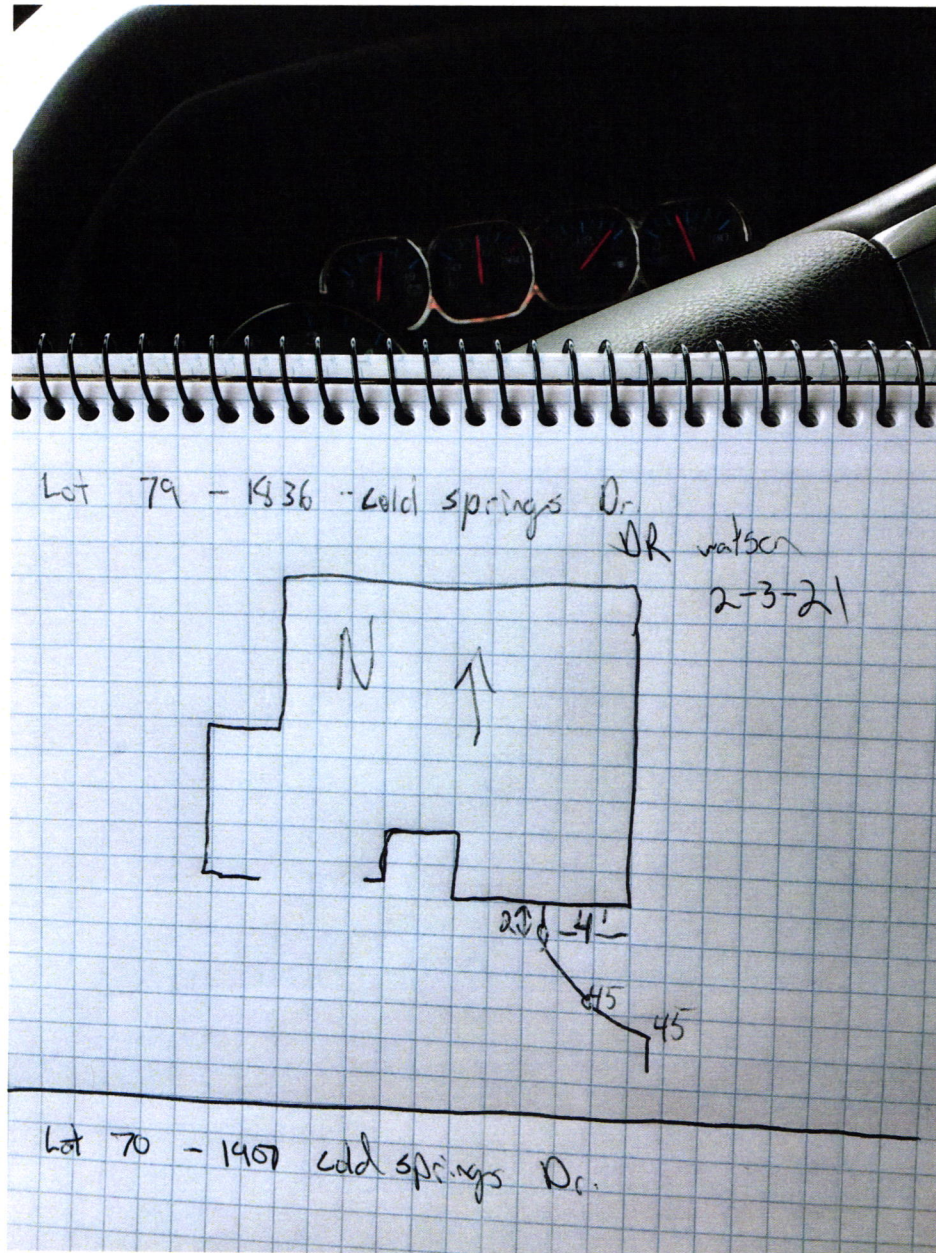 Lot 79 - 1836 - cold springs Dr.
DR watson
2-3-21
N
2 4'
45
45
Lot 70 - 1907 cold springs Dr.